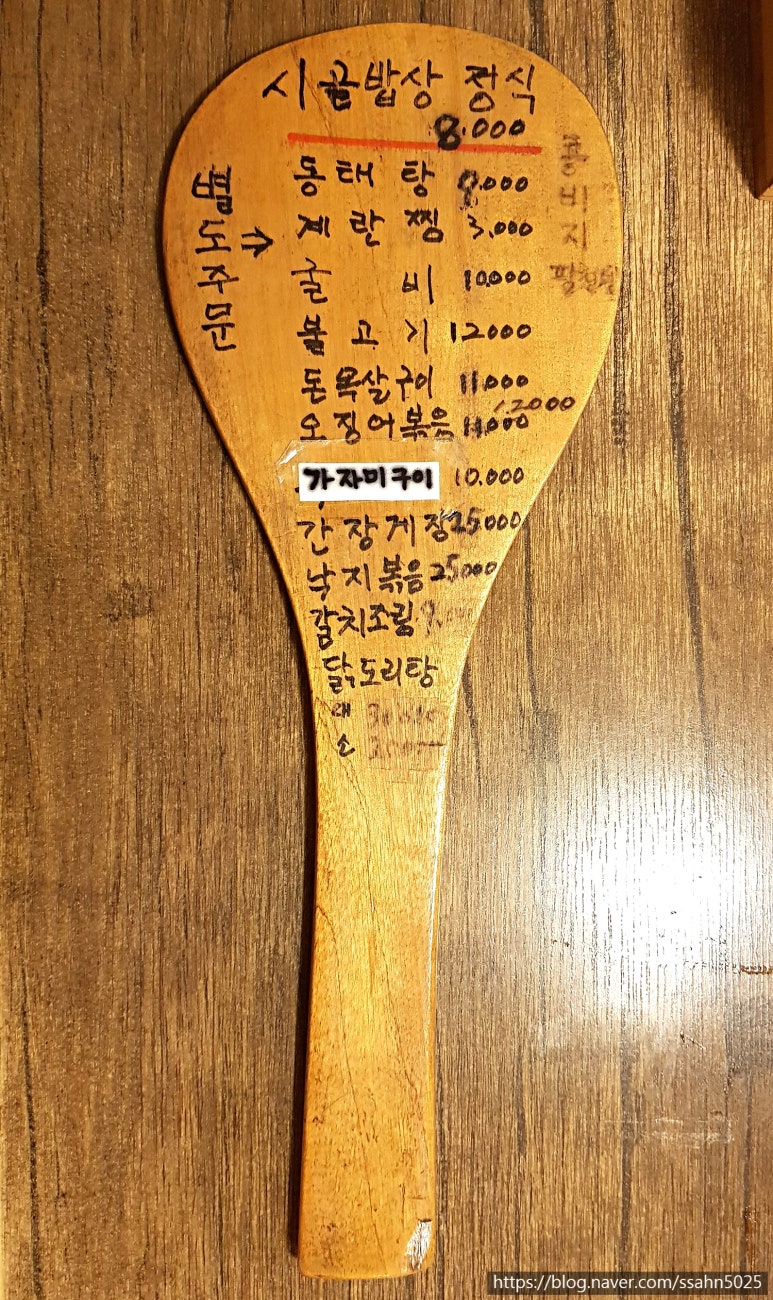 시골밥상 정식
8.000
별도주문 ⇒
동태탕 9.000
계란찜 3.000
굴비 10.000
불고기 12000
돈목살구이 11.000
12000
오징어볶음 11.000
가자미구이 10.000
간장게장 25.000
낙지볶음 25000
갈치조림
닭도리탕
대
소
콩비지
https://blog.naver.com/ssahn5025